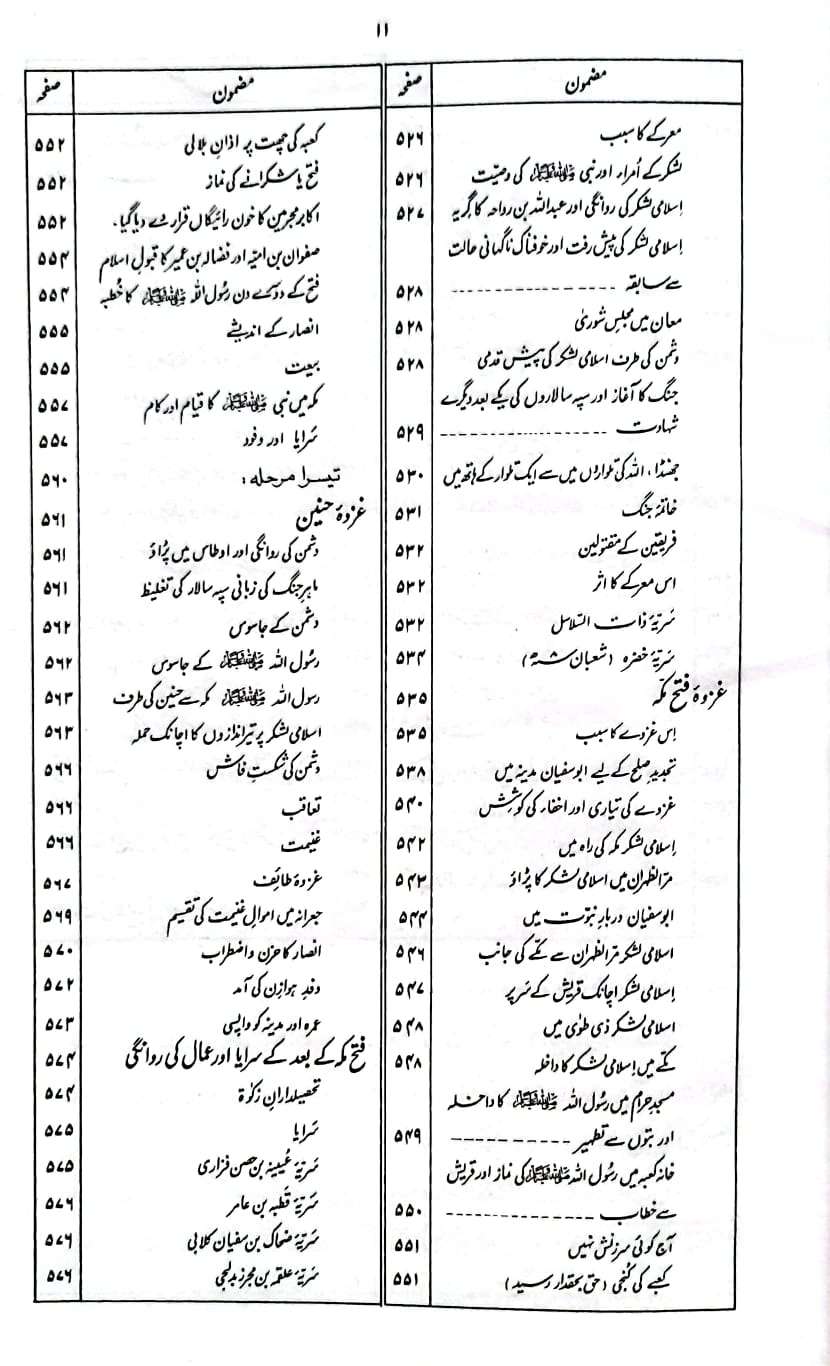 ۱۱
مضمون صفحہ
معرکے کا سبب ۵۲۶
لشکر کے اُمراء اور نبی ﷺ کی وصیت ۵۲۶
اِسلامی لشکر کی روانگی اور عبداللہ بن رواحہ کا گریہ ۵۲۷
اِسلامی لشکر کی پیش رفت اور خوفناک ناگہانی حالت
سے سابقہ ۵۲۸
معان میں مجلسِ شوریٰ ۵۲۸
دشمن کی طرف اسلامی لشکر کی پیش قدمی ۵۲۸
جنگ کا آغاز اور سپہ سالاروں کی یکے بعد دیگرے
شہادت ۵۲۹
جھنڈا، اللہ کی تلواروں میں سے ایک تلوار کے ہاتھ میں ۵۳۰
خاتمۂ جنگ ۵۳۱
فریقین کے مقتولین ۵۳۲
اس معرکے کا اثر ۵۳۲
سَرِیّۂ ذات السّلاسل ۵۳۲
سَرِیّۂ خضرہ (شعبان ۸ھ) ۵۳۴
غزوۂ فتح مکہ ۵۳۵
اِس غزوے کا سبب ۵۳۵
تجدیدِ صلح کے لیے ابوسفیان مدینہ میں ۵۳۸
غزوے کی تیاری اور اخفاء کی کوشش ۵۴۰
اِسلامی لشکر مکہ کی راہ میں ۵۴۲
مرّالظہران میں اسلامی لشکر کا پڑاؤ ۵۴۳
ابوسفیان دربارِ نبوّت میں ۵۴۴
اسلامی لشکر مرّالظہران سے مکے کی جانب ۵۴۶
اِسلامی لشکر اچانک قریش کے سَر پر ۵۴۷
اسلامی لشکر ذی طویٰ میں ۵۴۸
مکے میں اِسلامی لشکر کا داخلہ ۵۴۸
مسجدِ حرام میں رسُول اللہ ﷺ کا داخلہ
اور بتوں سے تطہیر ۵۴۹
خانہ کعبہ میں رسُول اللہ ﷺ کی نماز اور قریش
سے خطاب ۵۵۰
آج کوئی سرزنش نہیں ۵۵۱
کعبے کی کُنجی (حق بحقدار رسید) ۵۵۱
مضمون صفحہ
کعبہ کی چھت پر اذانِ بلالی ۵۵۲
فتح یا شکرانے کی نماز ۵۵۲
اکابر مجرمین کا خون رائیگاں قرار دے دیا گیا۔ ۵۵۲
صفوان بن امیّہ اور فضالہ بن عمیر کا قبولِ اسلام ۵۵۴
فتح کے دوسرے دن رسُول اللہ ﷺ کا خُطبہ ۵۵۴
انصار کے اندیشے ۵۵۵
بیعت ۵۵۵
مکہ میں نبی ﷺ کا قیام اور کام ۵۵۷
سَرایا اور وفود ۵۵۷
تیسرا مرحلہ: ۵۶۰
غزوۂ حنین ۵۶۱
دشمن کی روانگی اور اوطاس میں پڑاؤ ۵۶۱
ماہرِ جنگ کی زبانی سپہ سالار کی تغلیط ۵۶۱
دشمن کے جاسوس ۵۶۲
رسُول اللہ ﷺ کے جاسوس ۵۶۲
رسول اللہ ﷺ مکہ سے حنین کی طرف ۵۶۳
اسلامی لشکر پر تیر اندازوں کا اچانک حملہ ۵۶۳
دشمن کی شکستِ فاش ۵۶۶
تعاقب ۵۶۶
غنیمت ۵۶۶
غزوۂ طائف ۵۶۷
جعرانہ میں اموالِ غنیمت کی تقسیم ۵۶۹
انصار کا حزن و اضطراب ۵۷۰
وفدِ ہوازن کی آمد ۵۷۲
عمرہ اور مدینہ کو واپسی ۵۷۳
فتح مکہ کے بعد کے سرایا اور عمال کی روانگی ۵۷۴
تحصیلدارانِ زکوٰۃ ۵۷۴
سَرایا ۵۷۵
سَرِیّۂ عُیینہ بن حصن فزاری ۵۷۵
سَرِیّۂ قطبہ بن عامر ۵۷۶
سَرِیّۂ ضحاک بن سفیان کلابی ۵۷۶
سَرِیّۂ علقمہ بن مجرز مدلجی ۵۷۶